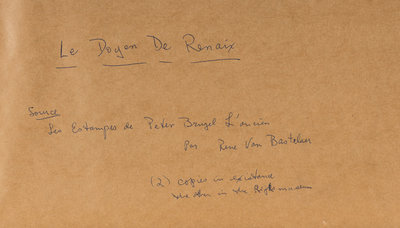 Le Doyen De Renaix
Source
Les Estampes de Peter Brugel L'ancien
Par Rene Van Bastelaer
(2) copies in existance
the other in the museum